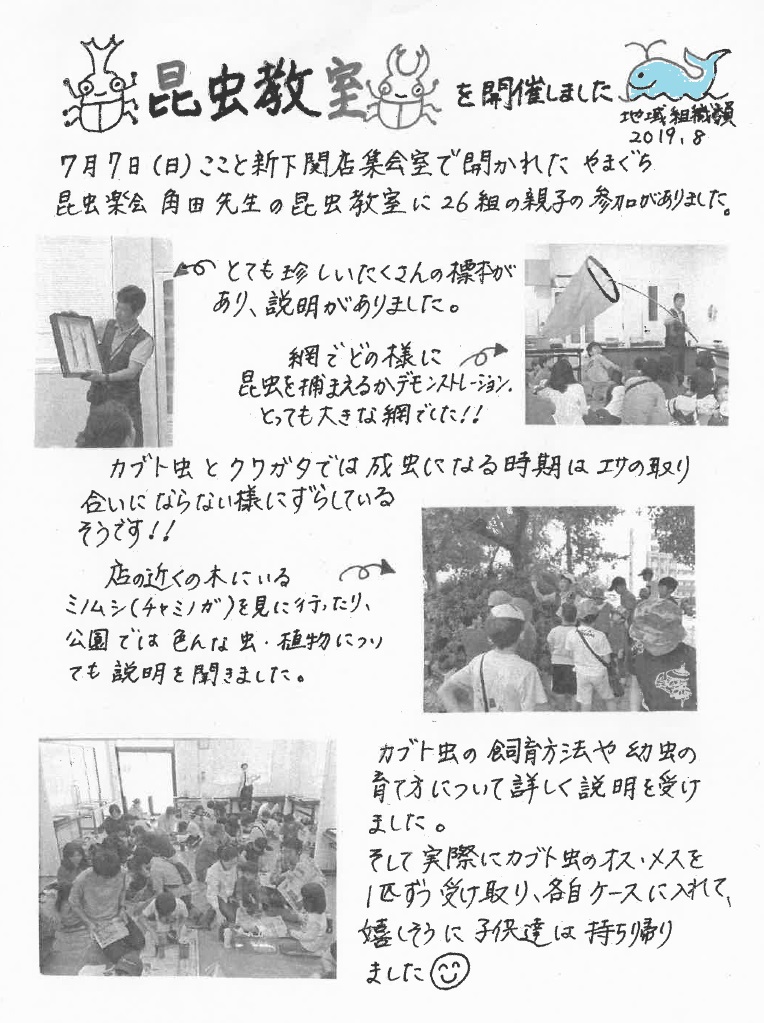 昆虫教室を開催しました
地域組織領
2019.8
7月7日(日)ここと新下関店集会室で開かれた やまぐち
昆虫楽会 角田先生の昆虫教室に26組の親子の参加がありました。
とても珍しいたくさんの標本が
あり、説明がありました。
網でどの様に
昆虫を捕まえるかデモンストレーション.
とっても大きな網でした!!
カブト虫とクワガタでは成虫になる時期はエサの取り
合いにならない様にずらしている
そうです!!
店の近くの木にいる
ミノムシ(チャミノガ)を見に行ったり、
公園では色んな虫・植物につい
ても説明を聞きました。
カブト虫の飼育方法や幼虫の
育て方について詳しく説明を受け
ました。
そして実際にカブト虫のオス・メスを
1匹ずつ受け取り、各自ケースに入れて、
嬉しそうに子供達は持ち帰り
ました